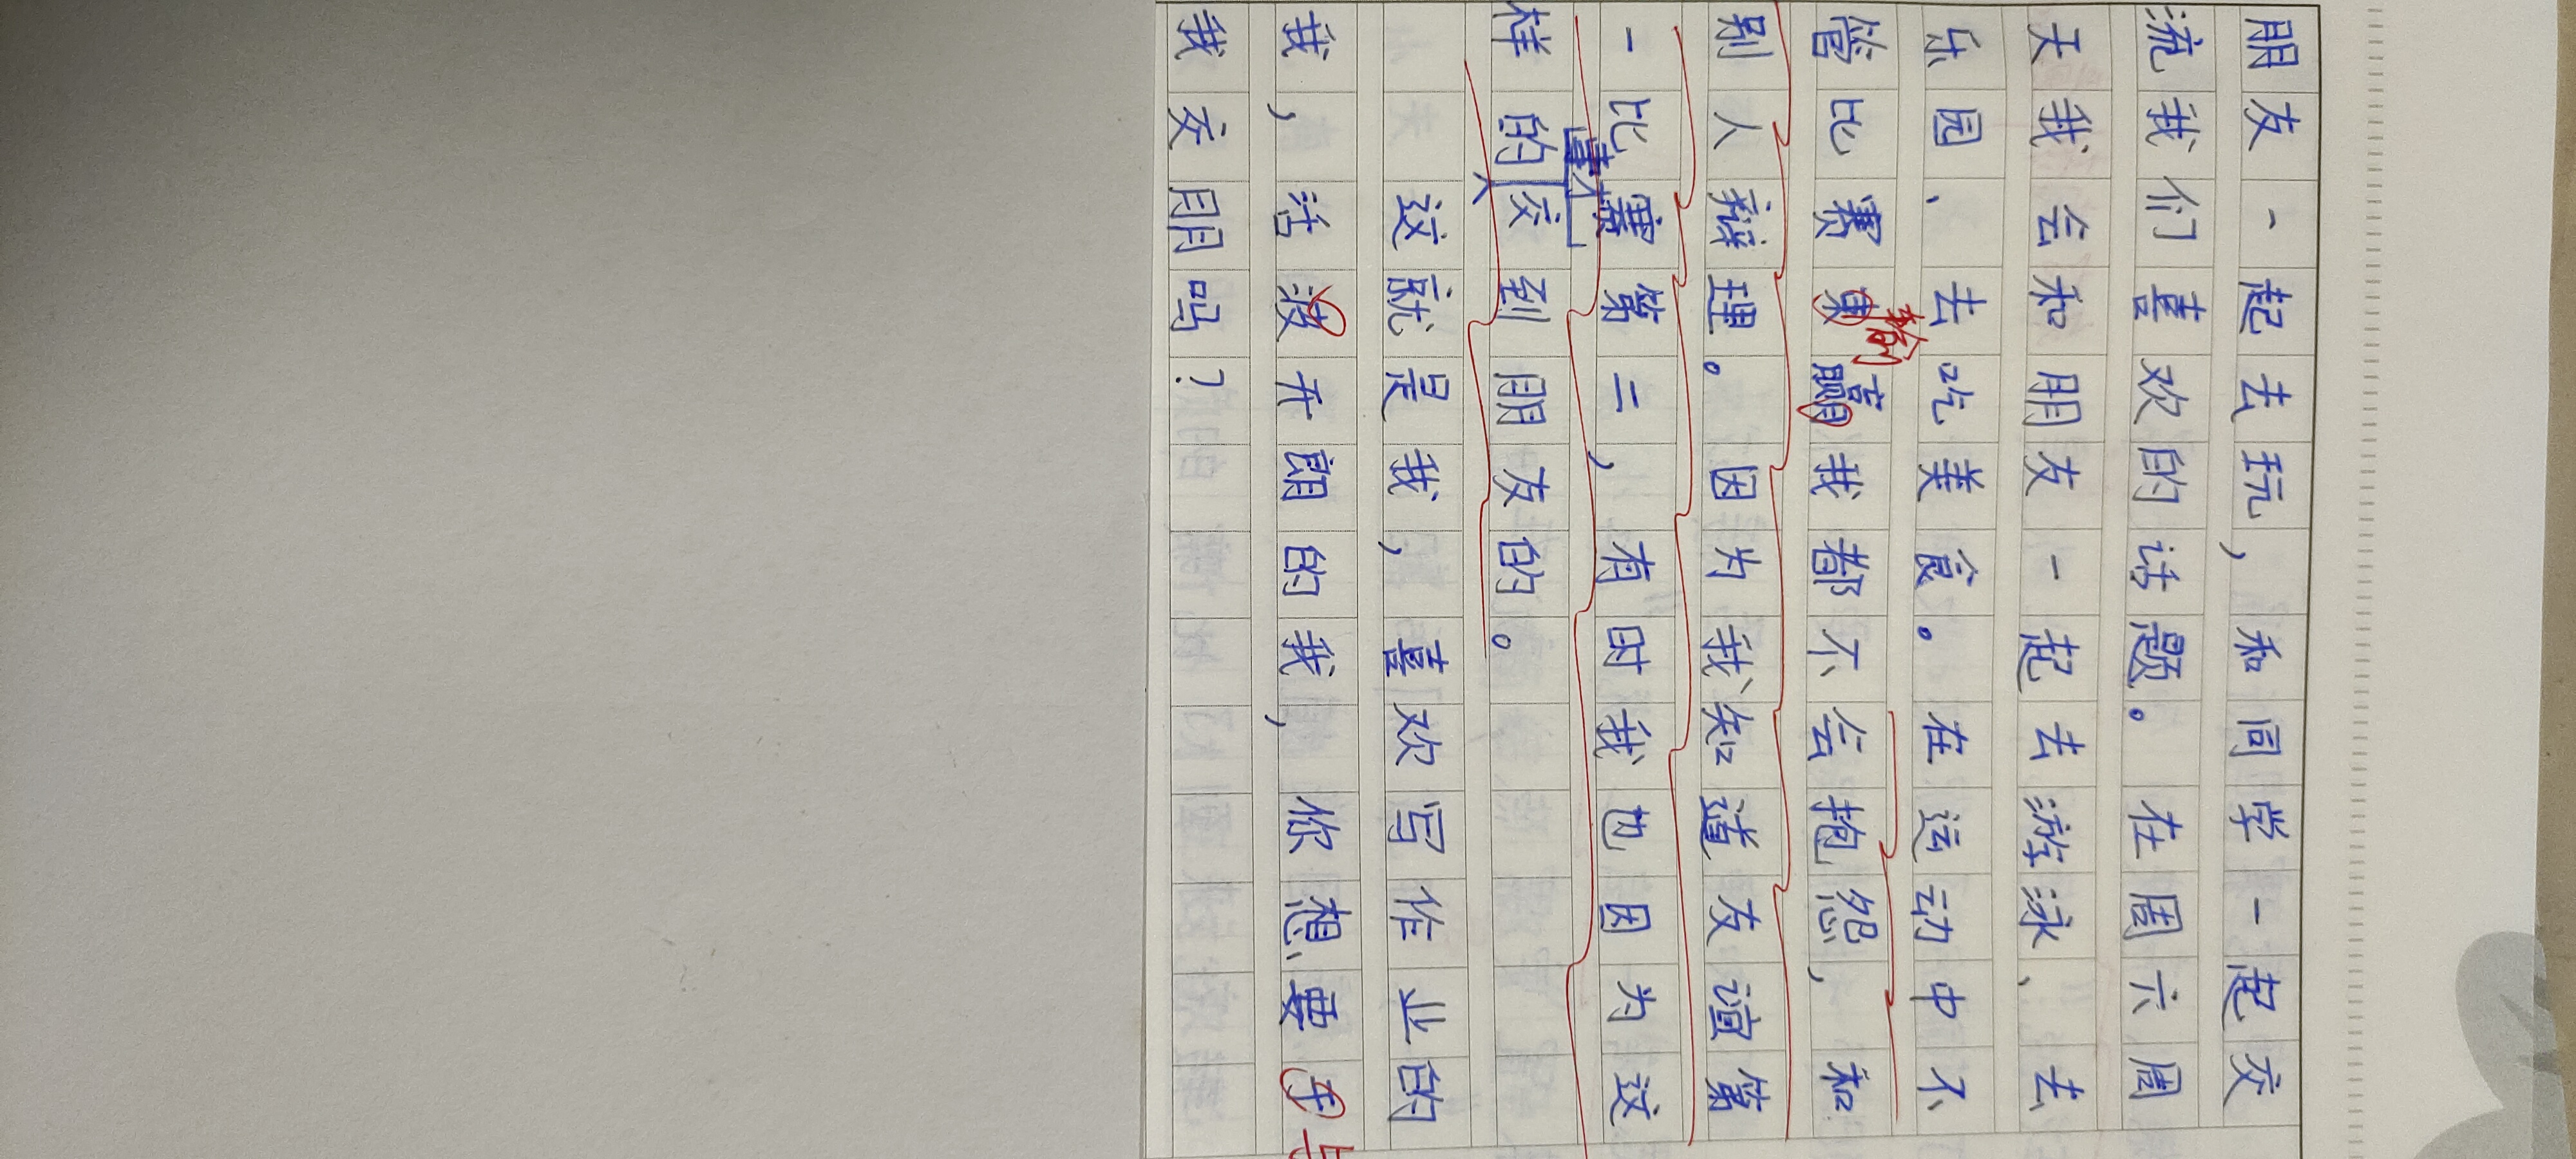 朋友一起去玩，和同学一起交
流我们喜欢的话题。在周六周
天我会和朋友一起去游泳、去
乐园、去吃美食。在运动中不
管比赛输赢我都不会抱怨，和
别人辩理。因为我知道友谊第
一比赛第二，有时我也因为这
样的喜个交到朋友的。
这就是我，喜欢写作业的
我，活泼开朗的我，你想要与
我交朋吗？